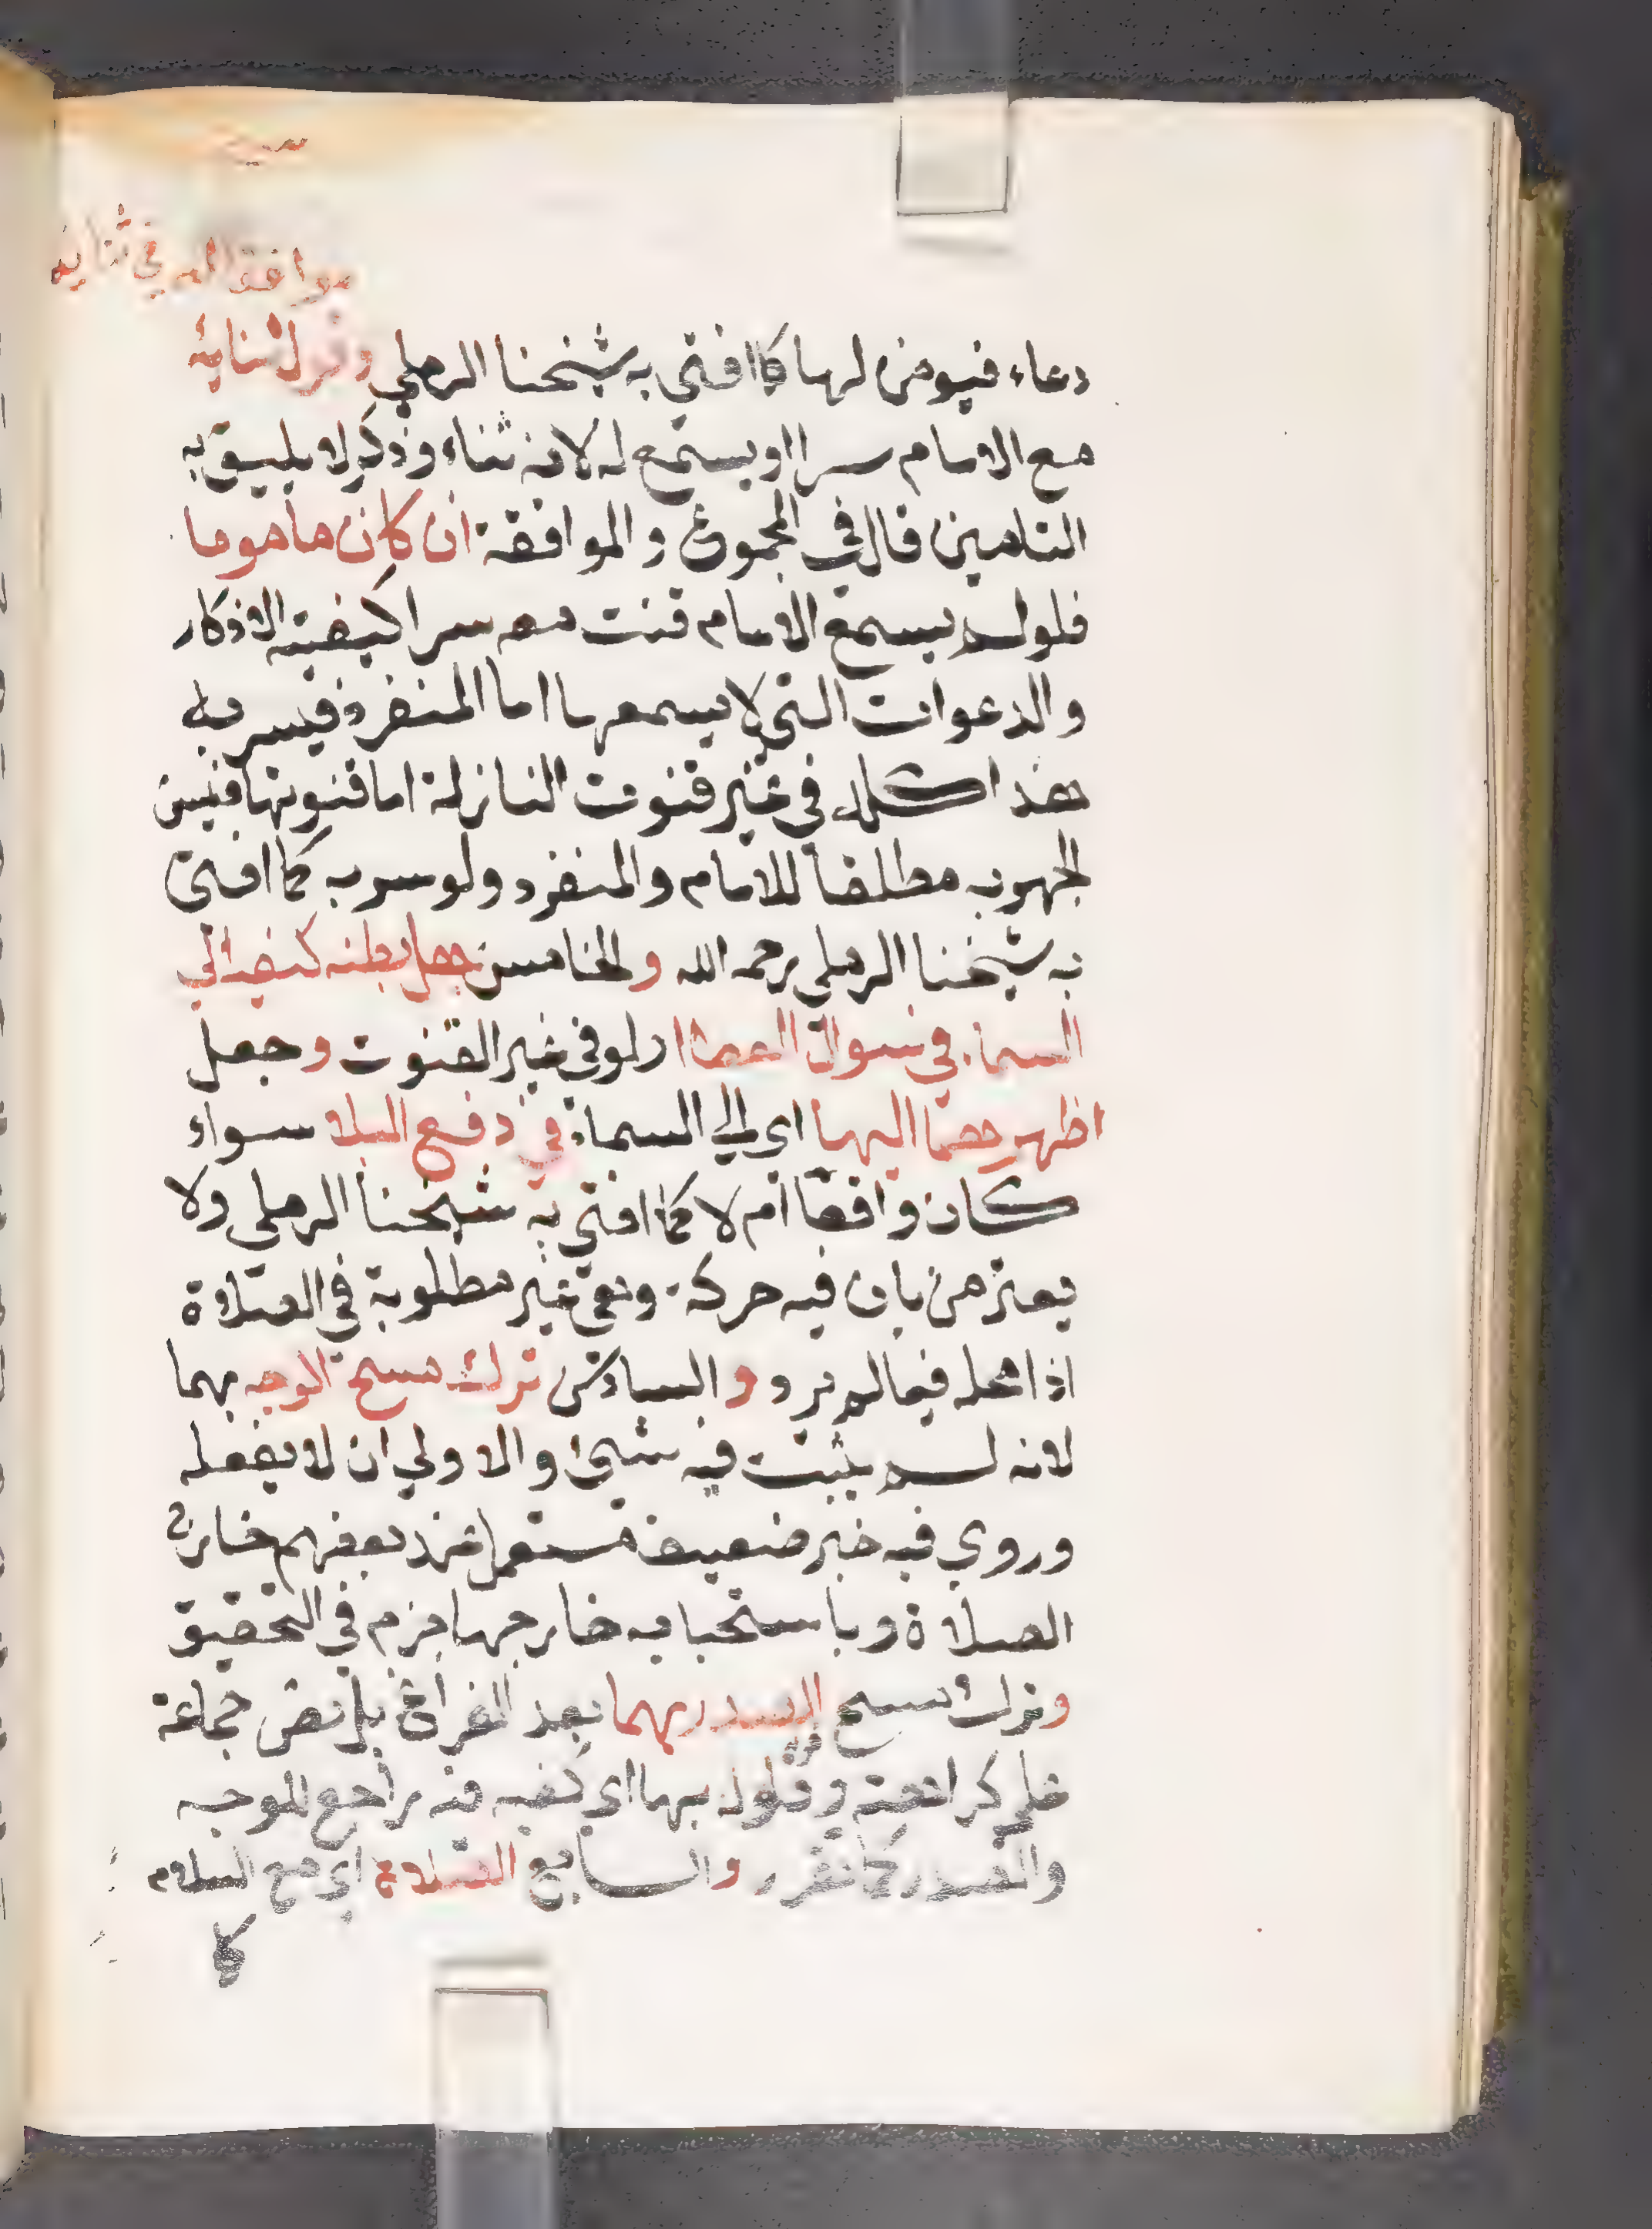 موافقة الامام في ثنايه
دعاء فيومن لها كما افتي به شيخنا الرملي وقول ثنايه
مع الامام سرا او يستمع له لانه ثناء وذكر لا يليق به
التامين قال في المجموع والموافقة ان كان ماموما
فلو لم يسمع الامام قنت معه سرا كبقية الاذكار
والدعوات التي لا يسمعها اما المنفرد فيسر به
هذا كله في غير قنوت النازلة اما قنوتها فيسن
الجهر به مطلقا للامام والمنفرد ولو سرية كما افتى
به شيخنا الرملي رحمه الله والخامس جعل بطنه كفيه الي
السماء في سوال العطاء ولو في غير القنوت وجعل
اظهرهما اليها اي الي السماء في دفع البلا سواء
كان واقعا ام لا كما افتي به شيخنا الرملي ولا
يعترض بان فيه حركة وهي غير مطلوبة في الصلاة
اذ محله فيما لم يرد والسادس ترك مسح الوجه بهما
لانه لم يثبت فيه شيئ والاولي ان لا يفعله
وروي فيه خبر ضعيف مستعمل عند بعضهم خارج
الصلاة وباستحبابه خارجها جزم في التحقيق
وترك مسح الصدر بهما بعد الفراغ بل نص جماعة
علي كراهته وقوله بهما اي كفيه قد راجع للوجه
والصدر كما تقرر والسابع الصلاة اي مع السلام
كا